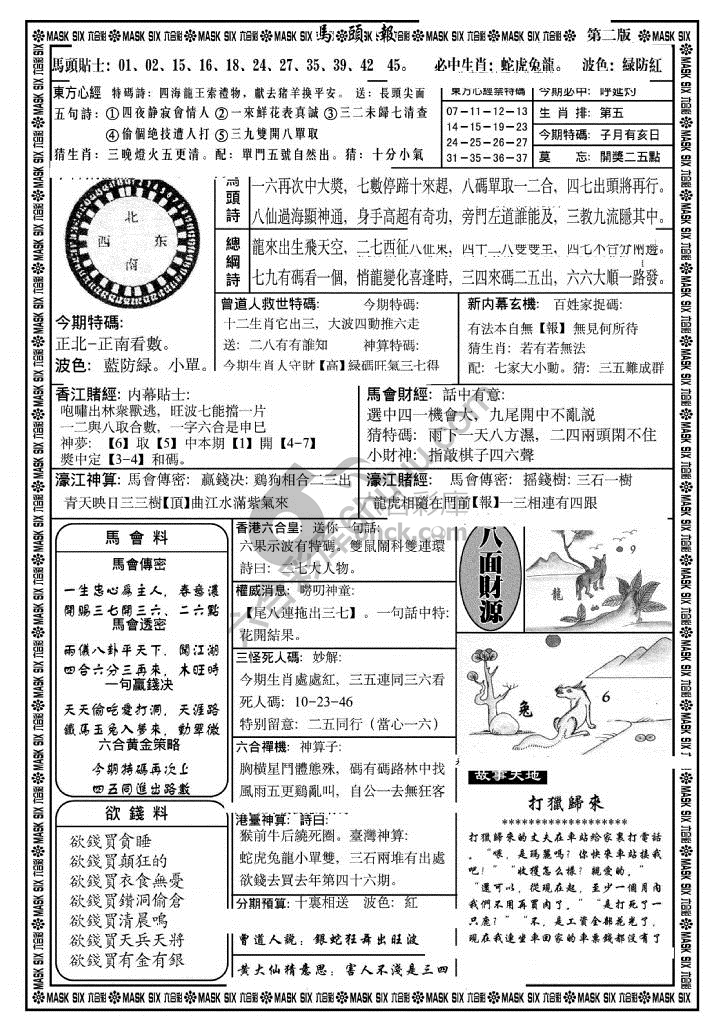 MASK SIX 六合彩
馬頭報
第二版
馬頭貼士：01、02、15、16、18、24、27、35、39、42 45。 必中生肖：蛇虎兔龍。 波色：緑防紅
東方心經 特碼詩：四海龍王索禮物，獻去猪羊換平安。 送：長頭尖面
五句詩：①四夜静寂會情人 ②一來鮮花表真誠 ③三二未歸七清查
④偷個絶技遭人打 ⑤三九雙開八單取
猜生肖：三晚燈火五更清。配：單門五號自然出。猜：十分小氣
東方心經禁特碼
07-11-12-13
14-15-19-23
24-25-26-27
31-35-36-37
今期必中：呼延灼
生肖排：第五
今期特碼：子月有亥日
莫忘：開獎二五點
北
西 东
南
今期特碼:
正北-正南看數。
波色：藍防緑。小單。
馬頭詩
一六再次中大獎，七數停蹄十來趕，八碼單取一二合，四七出頭將再行。
八仙過海顯神通，身手高超有奇功，旁門左道誰能及，三教九流隱其中。
總綱詩
龍來出生飛天空，二七西征八仙東，四十二八雙雙至，四七不合分兩邊。
七九有碼看一個，悄龍變化喜逢時，三四來碼二五出，六六大順一路發。
曾道人救世特碼: 今期特碼:
十二生肖它出三，大波四動推六走
送：二八有有誰知 神算特碼:
今期生肖人守財【高】緑碼旺氣三七得
新内幕玄機: 百姓家捉碼:
有法本自無【報】無見何所待
猜生肖：若有若無法
配：七家大小動。猜：三五難成群
香江賭經: 内幕貼士:
咆嘯出林衆獸逃，旺波七能擋一片
一二與八取合數，一字六合是申巳
神夢：【6】取【5】中本期【1】開【4-7】
奬中定【3-4】和碼。
馬會財經: 話中有意:
選中四一機會大，九尾開中不亂説
猜特碼：雨下一天八方濕，二四兩頭閑不住
小財神：指敲棋子四六聲
濠江神算: 馬會傳密: 贏錢决: 鷄狗相合一二三出
青天映日三三樹【頂】曲江水滿紫氣來
濠江賭經: 馬會傳密: 摇錢樹: 三石一樹
龍虎相隨在門前【報】一三相連有四跟
馬會料
馬會傳密
一生忠心爲主人，春意濃
開賜三七開三六、二六點
馬會透密
兩儀八卦平天下，闖江湖
四合六分三再來，木旺時
一句贏錢决
天天偷吃愛打洞，天涯路
鐵馬玉兔入夢來，勤翠微
六合黄金策略
今期特碼再次上
四五同進出路數
欲錢料
欲錢買貪睡
欲錢買顛狂的
欲錢買衣食無憂
欲錢買鑽洞偷倉
欲錢買清晨鳴
欲錢買天兵天將
欲錢買有金有銀
香港六合皇: 送你一句話,
六果示波有特碼，雙鼠關科雙連環
詩曰：二七大人物。
權威消息: 嘮叨神童:
【尾八連拖出三七】。一句話中特:
花開結果。
三怪死人碼: 妙解:
今期生肖處處紅，三五連同三六看
死人碼：10-23-46
特别留意：二五同行（當心一六）
六合禪機: 神算子:
胸横星鬥體態殊，碼有碼路林中找
風雨五更鷄亂叫，自公一去無狂客
港臺神算: 詩曰:
猴前牛后繞死圈。臺灣神算:
蛇虎兔龍小單雙，三石兩堆有出處
欲錢去買去年第四十六期。
分期預算: 十裏相送 波色：紅
曾道人説：銀蛇狂舞出旺波
黄大仙猜意思：害人不淺是三四
八面財源
龍
9
兔
6
故事天地
打獵歸來
*******************
打獵歸來的丈夫在車站給家裏打電話
。“喂，是瑪麗嗎？你快來車站接我
吧！”“收獲怎么樣？親愛的。”
“還可以，從現在起，至少一個月内
我們不用再買肉了。”“是打死了一
只鹿？”“不，是工資全部花光了，
現在我連坐車回家的車票錢都没有了